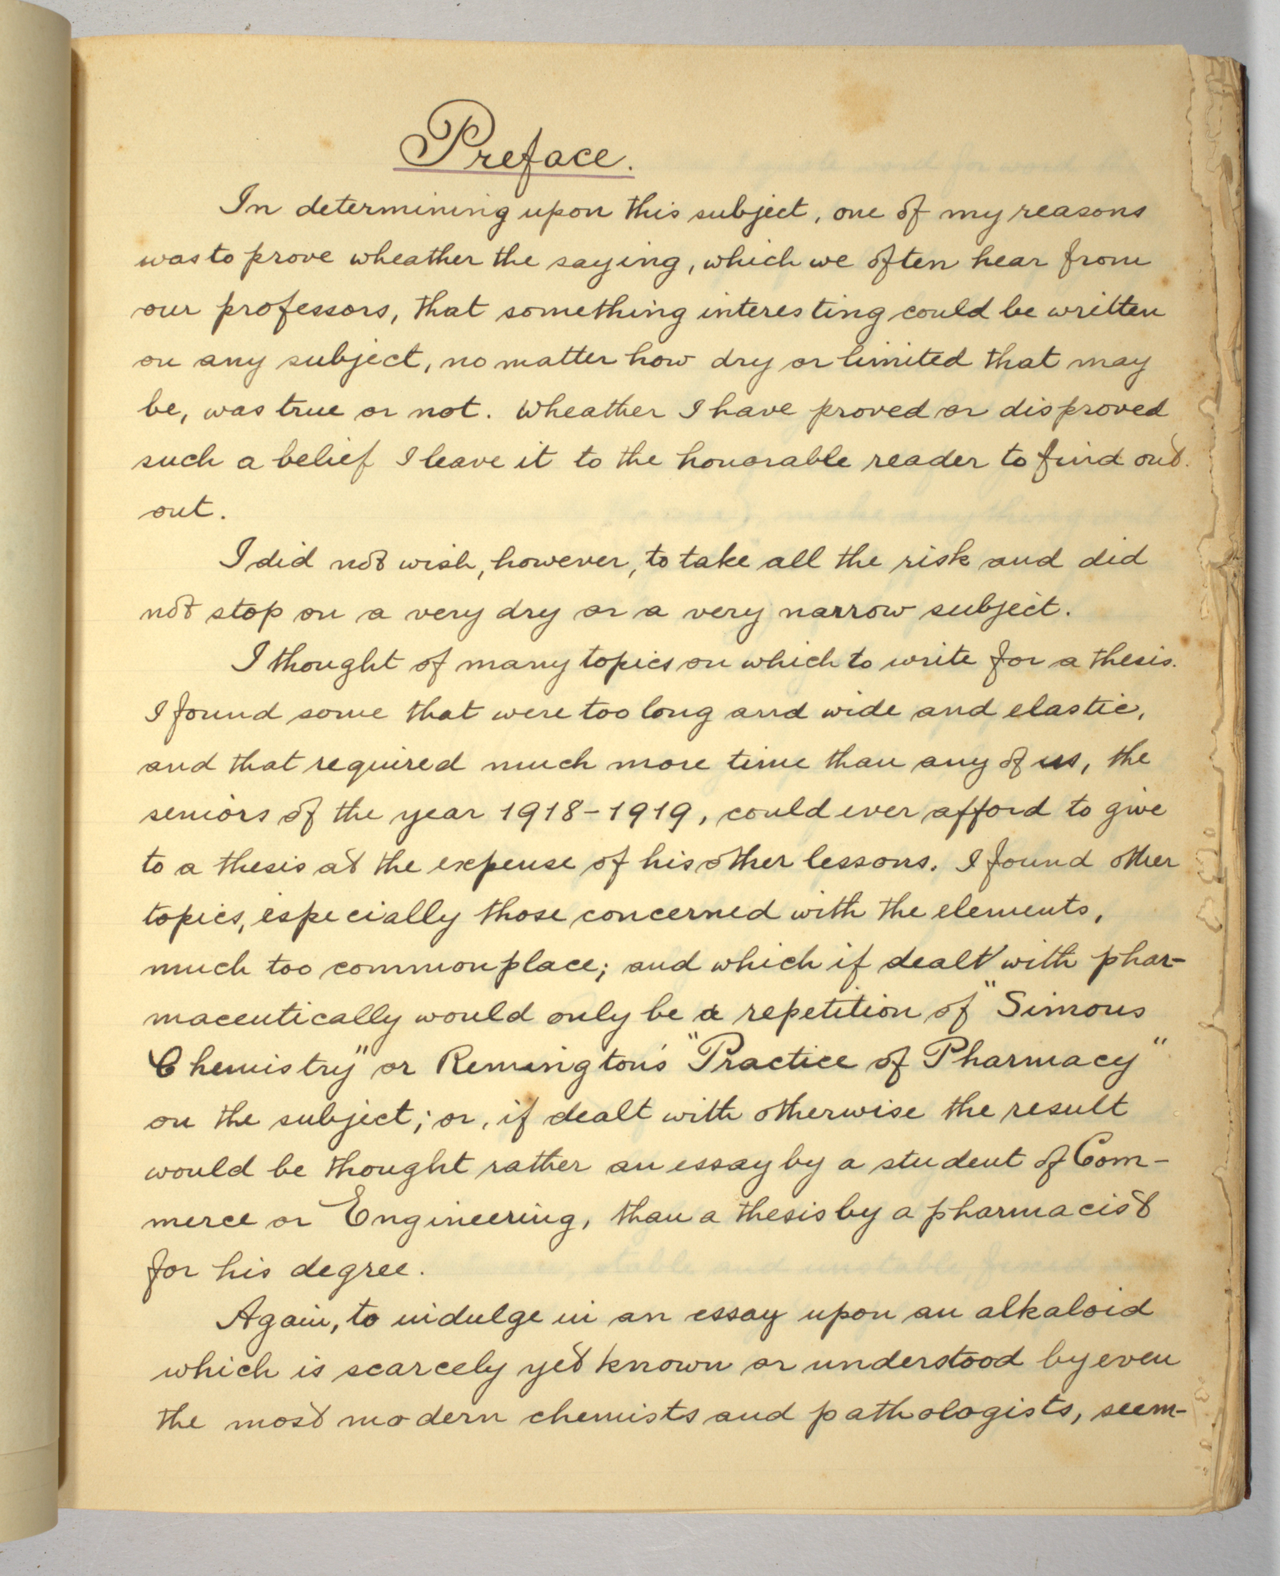 Preface.
In determining upon this subject, one of my reasons
was to prove wheather the saying, which we often hear from
our professors, that something interesting could be written
on any subject, no matter how dry or limited that may
be, was true or not. Wheather I have proved or disproved
such a belief I leave it to the honorable reader to find out.
out.
I did not wish, however, to take all the risk and did
not stop on a very dry or a very narrow subject.
I thought of many topics on which to write for a thesis.
I found some that were too long and wide and elastic,
and that required much more time than any of us, the
seniors of the year 1918-1919, could ever afford to give
to a thesis at the expense of his other lessons. I found other
topics, especially those concerned with the elements,
much too commonplace; and which if dealt with phar-
maceutically would only be a repetition of "Simons
Chemistry" or Remington's "Practice of Pharmacy"
on the subject; or, if dealt with otherwise the result
would be thought rather an essay by a student of Com-
merce or Engineering, than a thesis by a pharmacist
for his degree.
Again, to indulge in an essay upon an alkaloid
which is scarcely yet known or understood by even
the most modern chemists and pathologists, seem-